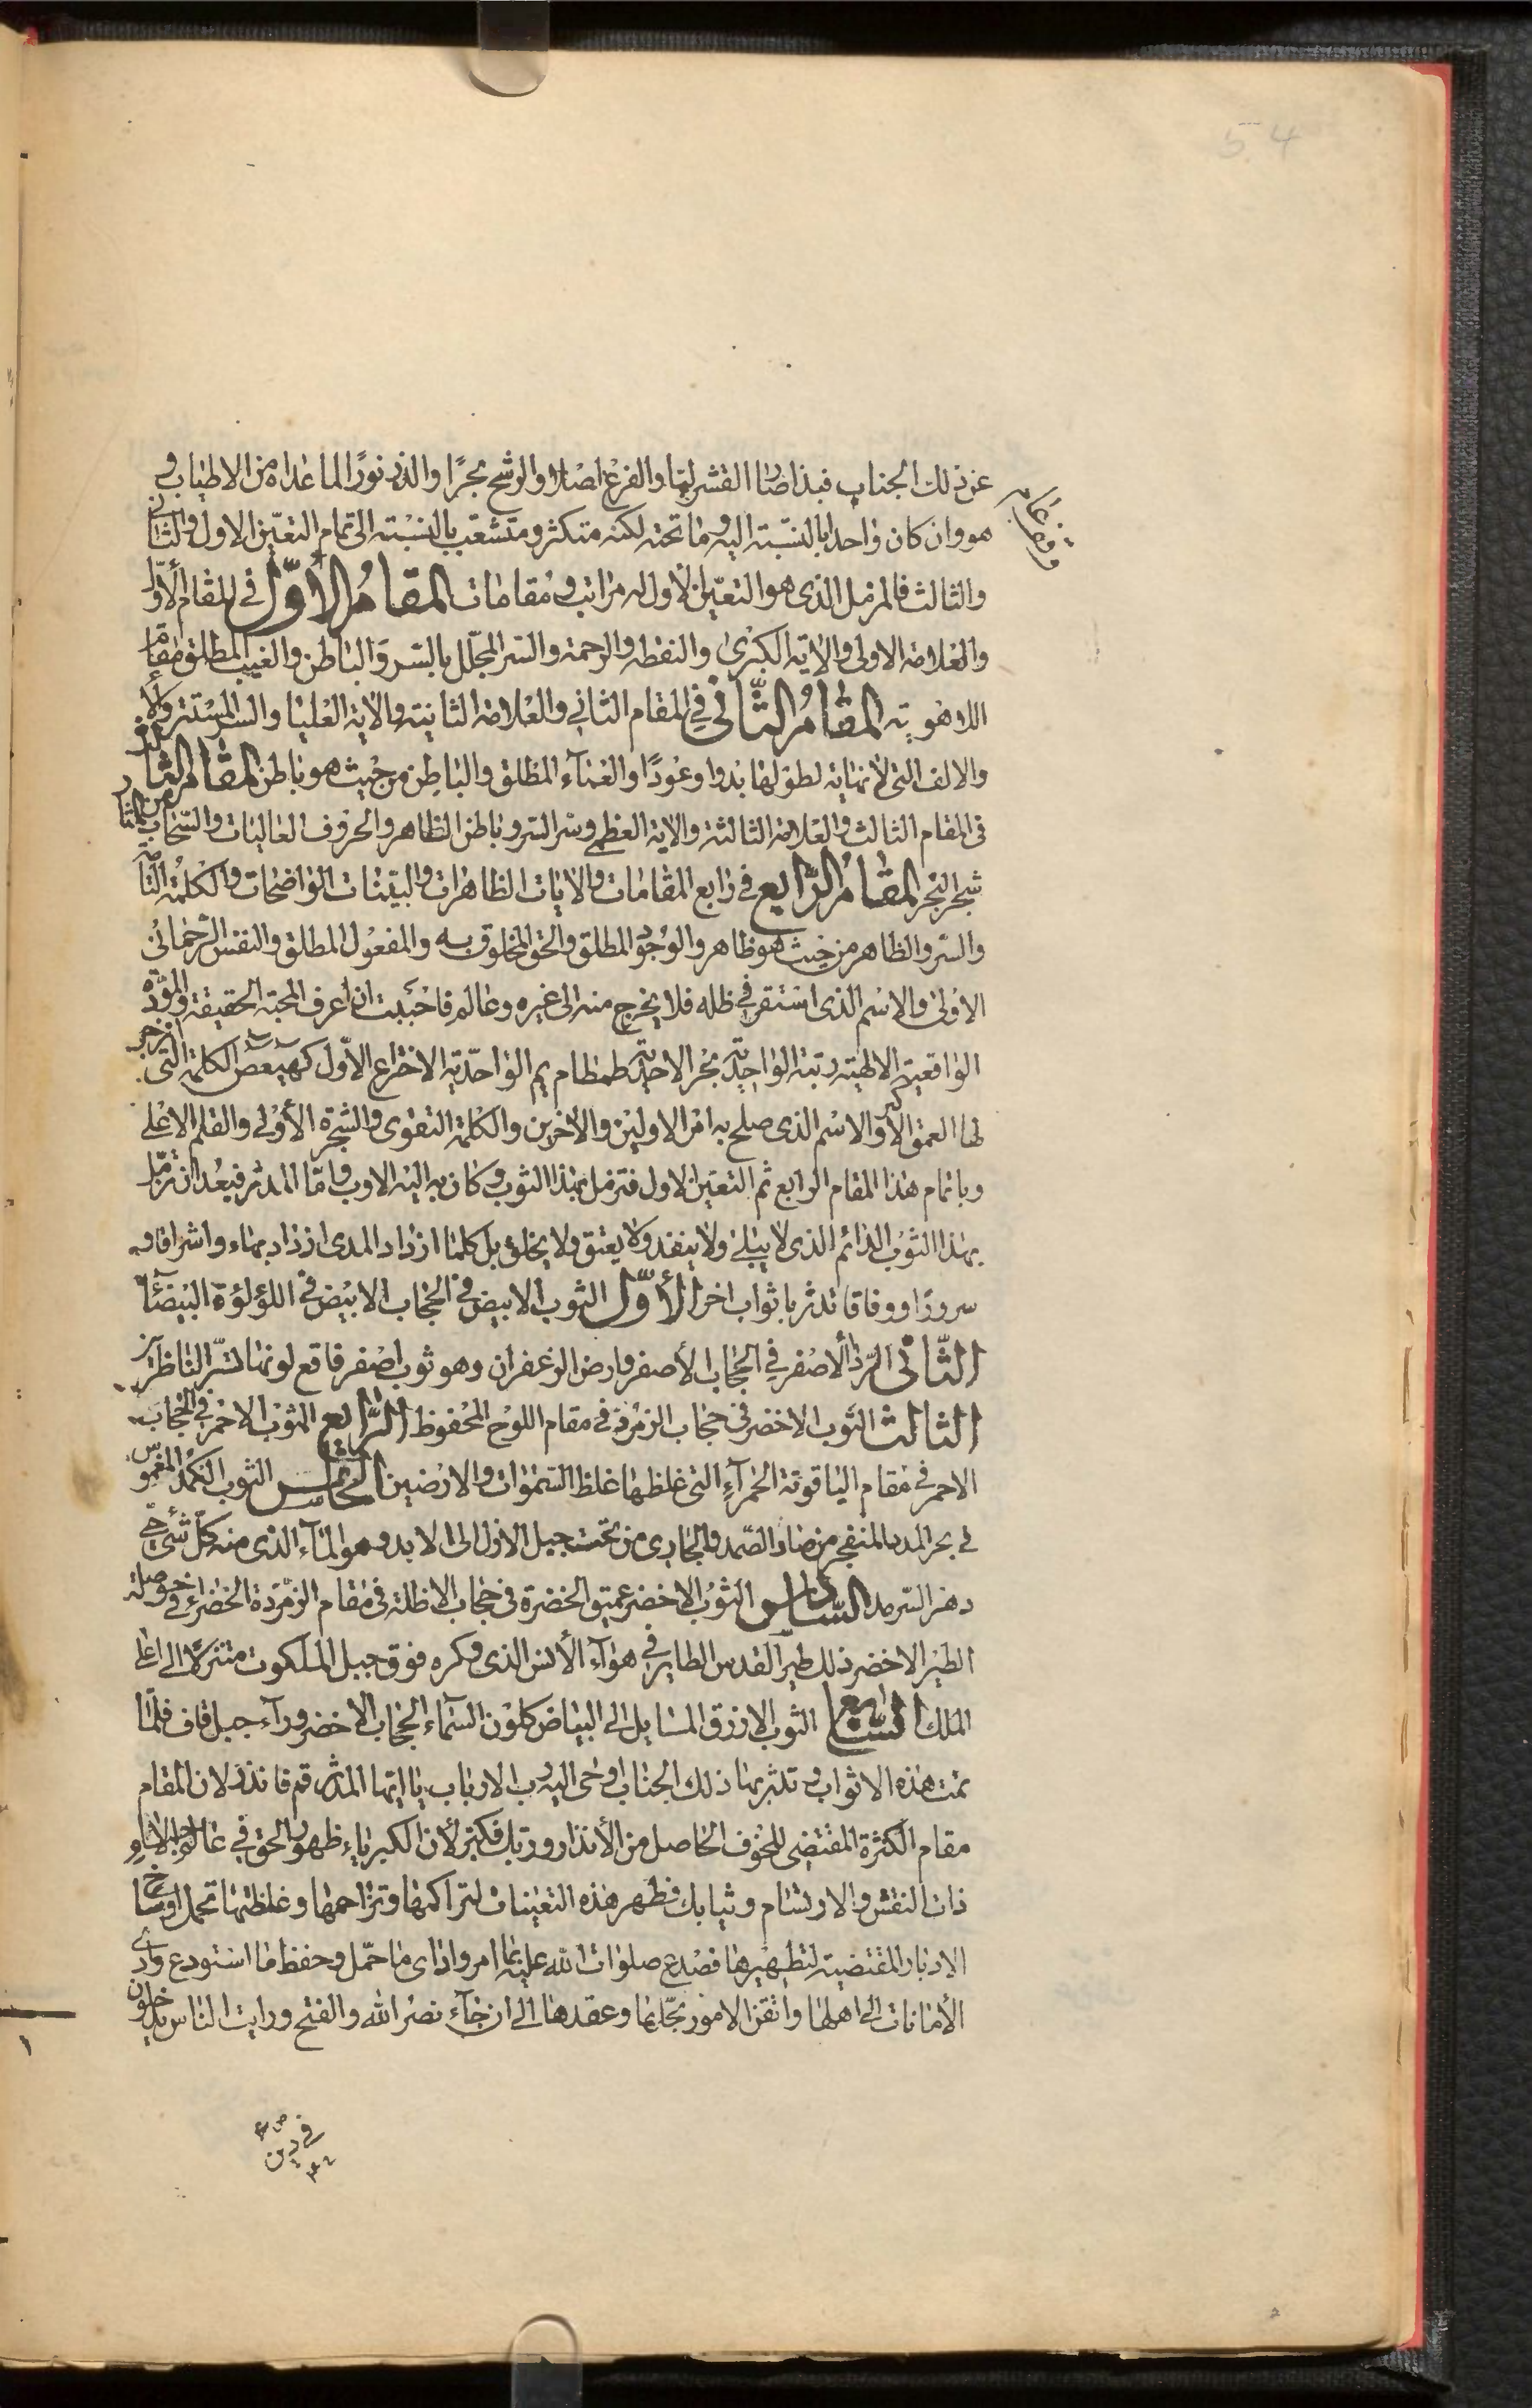 54
عن ذلك الجناب فبذا صار القشر لبّا والفرع اصلا والرشح بحرًا والذر نورًا لما عداه من الاطياب و
هو وان كان واحدا بالنسبته اليه وما تحته لكنه متكثر ومتشعب بالنسبته الى تمام التعيّن الاول والثاني
والثالث فالمزمل الذى هو التعيّن الاول له مراتب ومقامات المقام الاوّل فى المقام الاوّل
والعلامة الاولى والاية الكبرى والنقطه والرحمة والسر المجلّل بالسر والباطن والغيب المطلق مقام
اللاهويته المقام الثّانى فى المقام الثانى والعلامة الثانيته والاية العليا والسر المستتر
والالف التى لا نهاية لطولها بدوا وعودًا والعماء المطلق والباطن من حيث هو باطن المقام الثالث
فى المقام الثالث والعلامة الثالثة والاية العظمى وسر السر وباطن الظاهر والحروف العاليات والسحاب المثار من
شجر البحر المقام الرّابع فى رابع المقامات والايات الظاهرات والبيّنات الواضحات والكلمة التامّة
والسر والظاهر من حيث هو ظاهر والوجود المطلق والحق المخلوق به والمفعول المطلق والنفس الرحمانى
الاولى والاسم الذى استقر فى ظله فلا يخرج منه الى غيره وعالم فاحببت ان اعرف المحبّة الحقيقة والمودّة
الواقعية الالهيّته رتبة الواحديّة بحر الاحديّة طمطام يم الواحديّه الاختراع الاوّل كهيعص الكلمة التى انزجر
لها العمق الاكبر والاسم الذى صلح به امر الاولين والاخرين والكلمة التقوى والشجرة الاولى والقلم الاعلى
وباتمام هذا المقام الرابع تم التعيّن الاول فتزمل بهذا الثوب وكان به اليه الاوب وامّا المدثر فبعد ان تزمّل
بهذا الثوب الدائم الذى لا يبلى ولا ينفد ولا يعتق ولا يخلق بل كلما ازداد المدى ازداد بهاء واشراقا و
سرورًا ووفاقا تدثر باثواب اخر الأوّل الثوب الابيض فى الحجاب الابيض فى اللؤلؤة البيضآء
الثّانى الرّداء الاصفر فى الحجاب الأصفر وارض الزعفران وهو ثوب اصفر فاقع لونها تسرّ الناظرين
الثالث الثوب الاخضر فى حجاب الزمرد فى مقام اللوح المحفوظ الرّابع الثوب الاحمر فى الحجاب
الاحمر فى مقام الياقوتة الحمرآء التى غلظها غلظ السّموات والارضين الخامس الثوب الكمد المغموس
فى بحر المداد المنفجر من صاد الصّمد والجارى من تحت جبل الازل الى الابد وهو المآء الذى منه كلّ شئ حى
دهر السّرمد السّادس الثوب الاخضر عميق الخضرة فى حجاب الاظلة فى مقام الزمّردة الخضراء فى حوصلة
الطير الاخضر ذلك طير القدس الطاير فى هوآء الأنس الذى وكره فوق جبل الملكوت متنزلًا الى اعلى
الملك السّابع الثوب الازرق المايل الى البياض كلون السّماء الحجاب الاخضر ورآء جبل قاف فلمّا
تمت هذه الاثواب وتدثر بها ذلك الجناب اوحى اليه رب الارباب يا ايها المدثر قم فانذر لان المقام
مقام الكثرة المقتضى للخوف الحاصل من الأنذار وربك فكبّر لأن الكبرياء ظهور الحق فى عالم
ذات النقش والارتسام وثيابك فطهر هذه التعينات لتراكمها وتزاحمها وغلظتها تحمل اوساخ
الادبار المقتضية لتطهيرها فصدع صلوات الله عليه بما امر وادى ما حمّل وحفظ ما استودع وادى
الأمانات الى اهلها واتقن الامور بحّلها وعقدها الى ان جآء نصر الله والفتح ورايت الناس يدخلون
فى دين